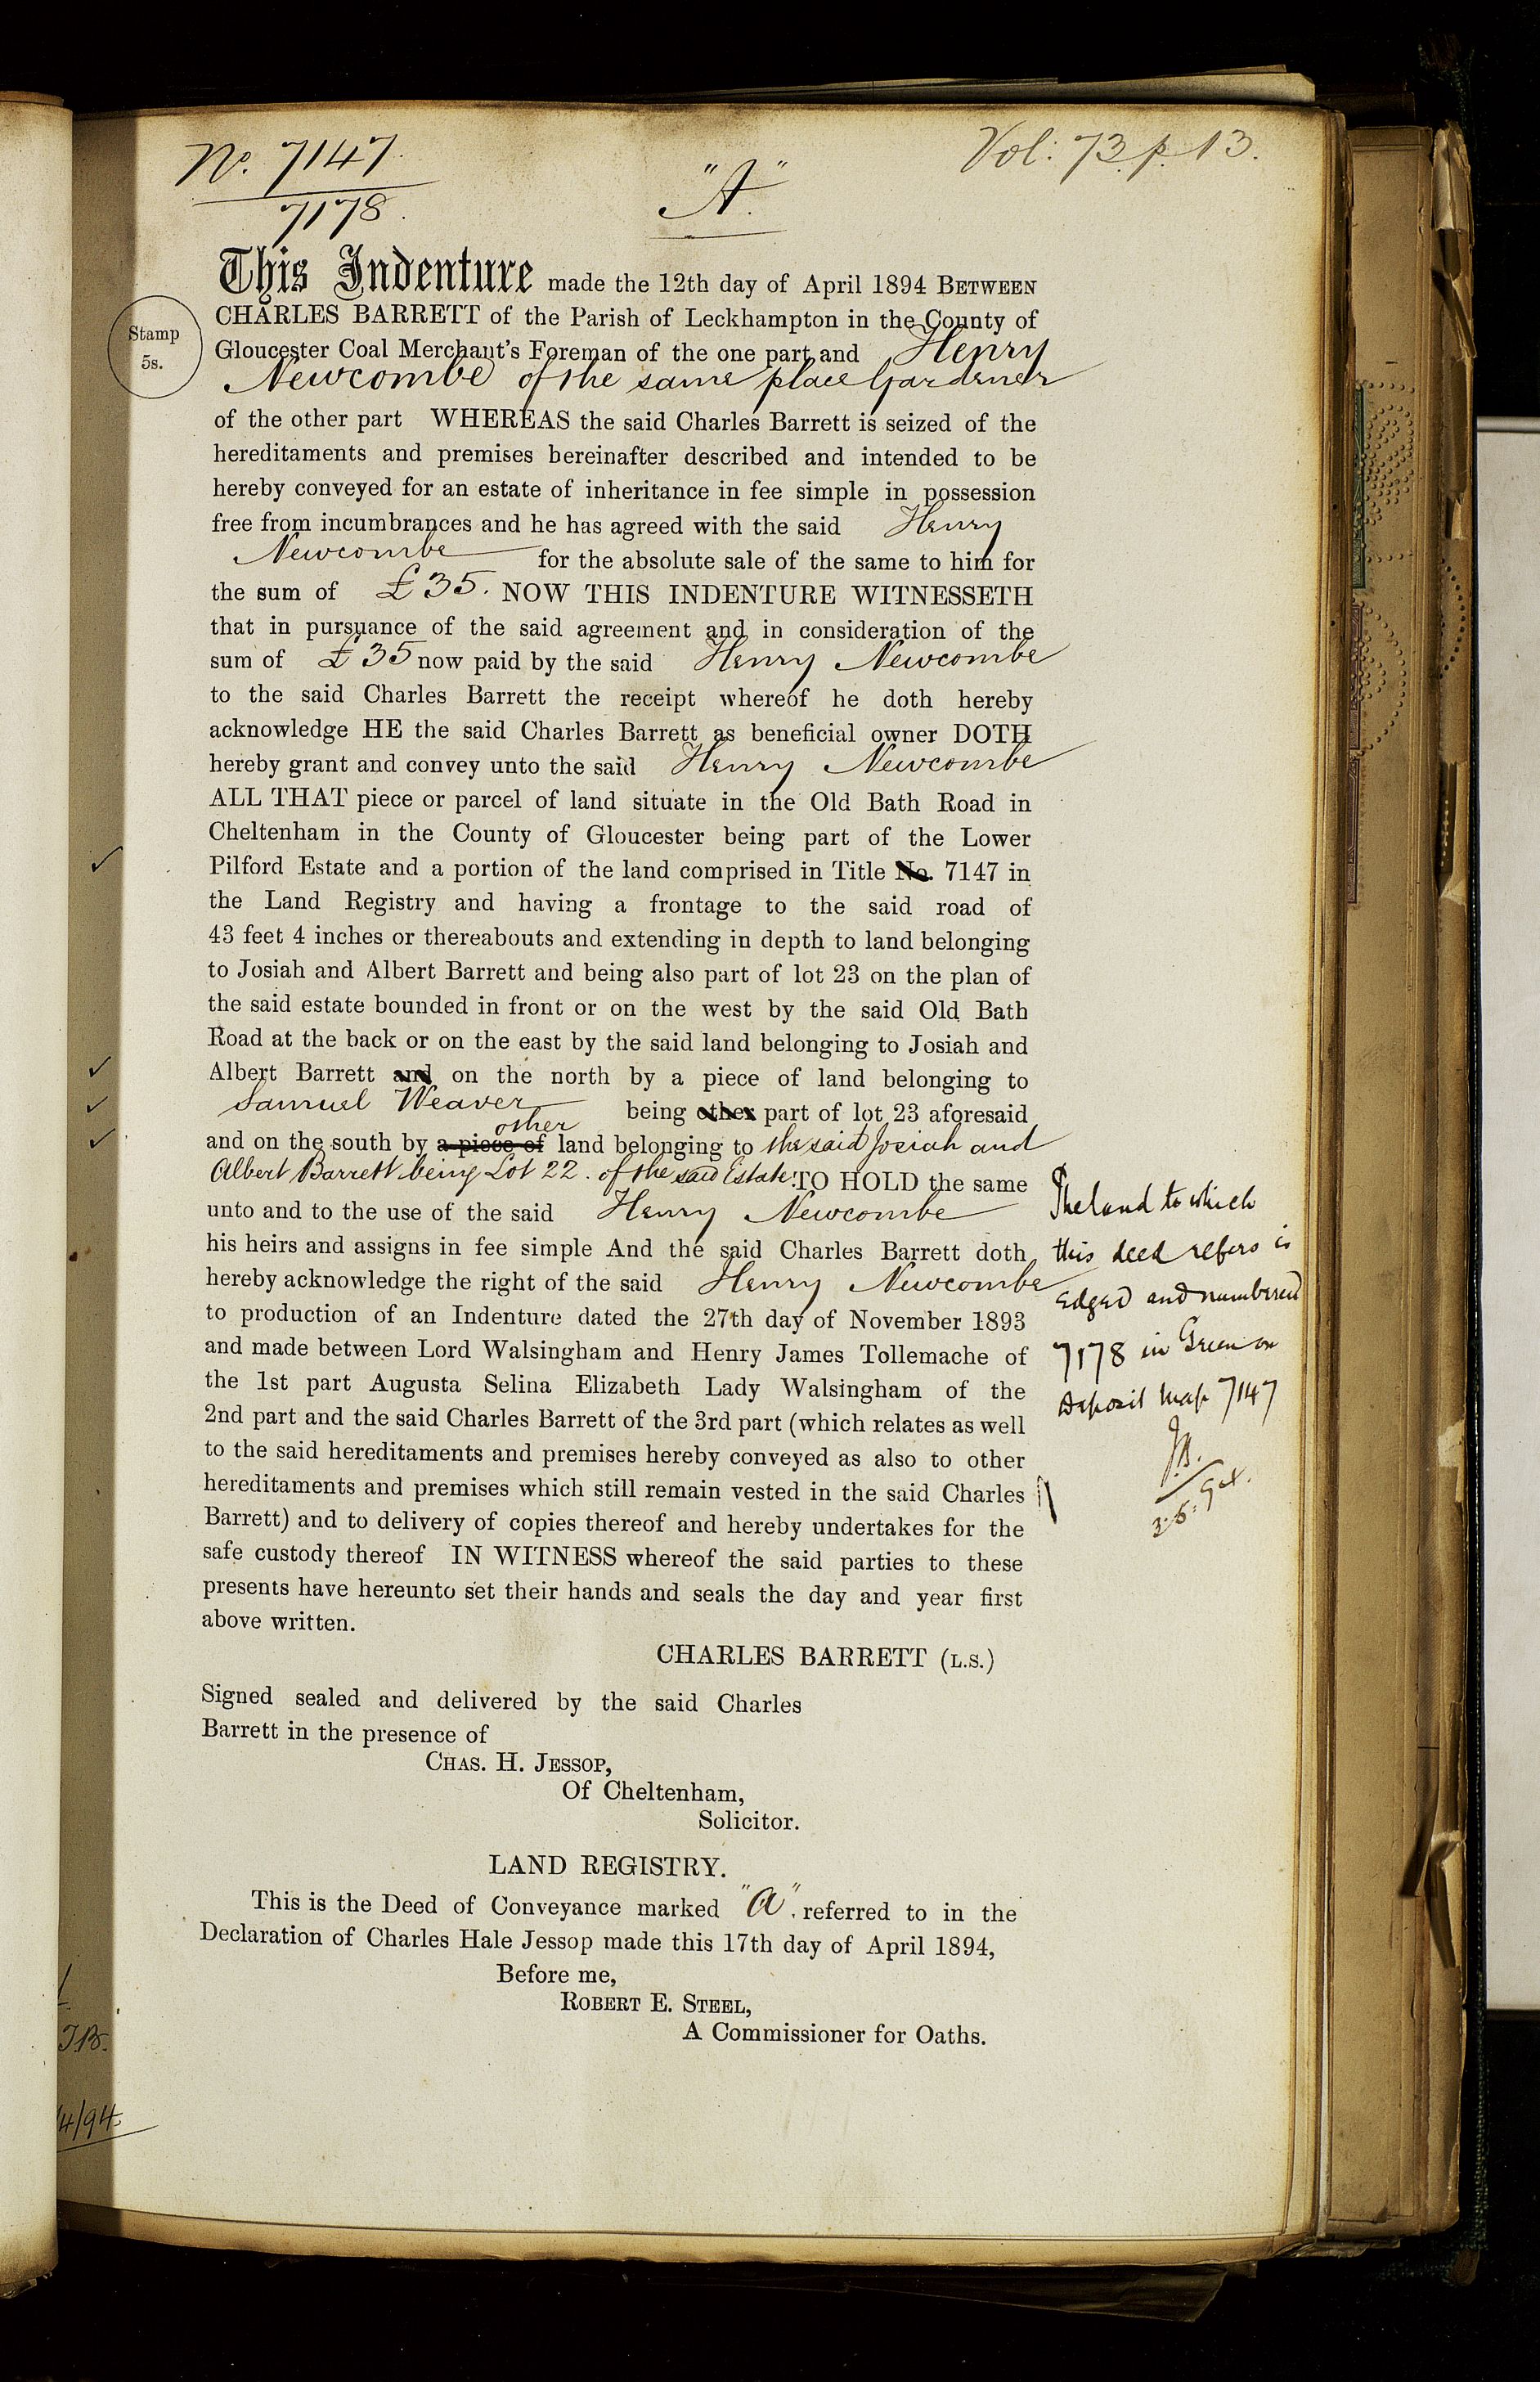 No. 7147.
7178.
"A"
Vol: 73. p. 13.
This Indenture made the 12th day of April 1894 BETWEEN
CHARLES BARRETT of the Parish of Leckhampton in the County of
Gloucester Coal Merchant's Foreman of the one part and Henry
Newcombe of the same place Gardener
Stamp
5s.
of the other part WHEREAS the said Charles Barrett is seized of the
hereditaments and premises bereinafter described and intended to be
hereby conveyed for an estate of inheritance in fee simple in possession
free from incumbrances and he has agreed with the said Henry
Newcombe for the absolute sale of the same to him for
the sum of £35. NOW THIS INDENTURE WITNESSETH
that in pursuance of the said agreement and in consideration of the
sum of £35 now paid by the said Henry Newcombe
to the said Charles Barrett the receipt whereof he doth hereby
acknowledge HE the said Charles Barrett as beneficial owner DOTH
hereby grant and convey unto the said Henry Newcombe
ALL THAT piece or parcel of land situate in the Old Bath Road in
Cheltenham in the County of Gloucester being part of the Lower
Pilford Estate and a portion of the land comprised in Title No. 7147 in
the Land Registry and having a frontage to the said road of
43 feet 4 inches or thereabouts and extending in depth to land belonging
to Josiah and Albert Barrett and being also part of lot 23 on the plan of
the said estate bounded in front or on the west by the said Old Bath
Road at the back or on the east by the said land belonging to Josiah and
Albert Barrett and on the north by a piece of land belonging to
Samuel Weaver being other part of lot 23 aforesaid
other
and on the south by a piece of land belonging to the said Josiah and
Albert Barrett being Lot 22. of the said Estate. TO HOLD the same
unto and to the use of the said Henry Newcombe
his heirs and assigns in fee simple And the said Charles Barrett doth
hereby acknowledge the right of the said Henry Newcombe
to production of an Indenture dated the 27th day of November 1893
and made between Lord Walsingham and Henry James Tollemache of
the 1st part Augusta Selina Elizabeth Lady Walsingham of the
2nd part and the said Charles Barrett of the 3rd part (which relates as well
to the said hereditaments and premises hereby conveyed as also to other
hereditaments and premises which still remain vested in the said Charles
Barrett) and to delivery of copies thereof and hereby undertakes for the
safe custody thereof IN WITNESS whereof the said parties to these
presents have hereunto set their hands and seals the day and year first
above written.
The land to which
this deed refers is
edged and numbered
7178 in Green on
Deposit Map 7147
CHARLES BARRETT (L.S.)
Signed sealed and delivered by the said Charles
Barrett in the presence of
CHAS. H. JESSOP,
Of Cheltenham,
Solicitor.
LAND REGISTRY.
This is the Deed of Conveyance marked "A". referred to in the
Declaration of Charles Hale Jessop made this 17th day of April 1894,
Before me,
ROBERT E. STEEL,
A Commissioner for Oaths.
4/94